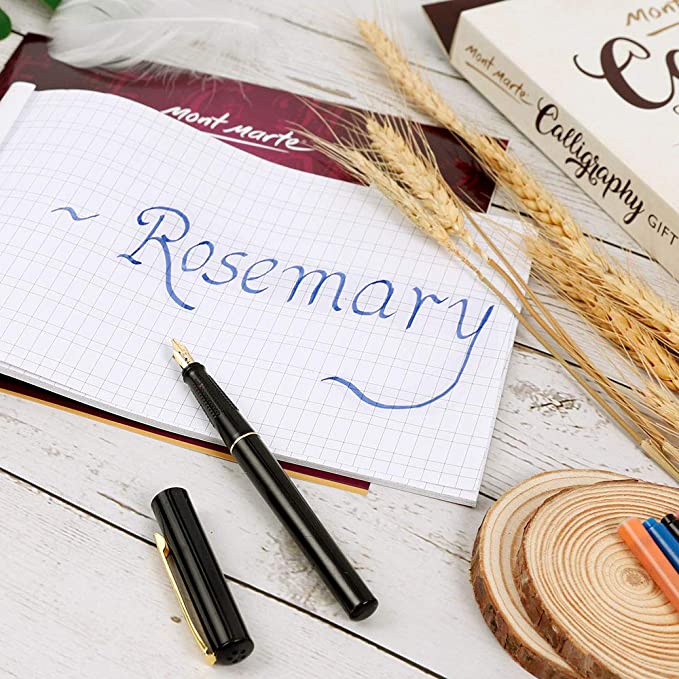 Mont Marte
~ Rosemary
Mont Marte
Calligraphy GIFT
Mont